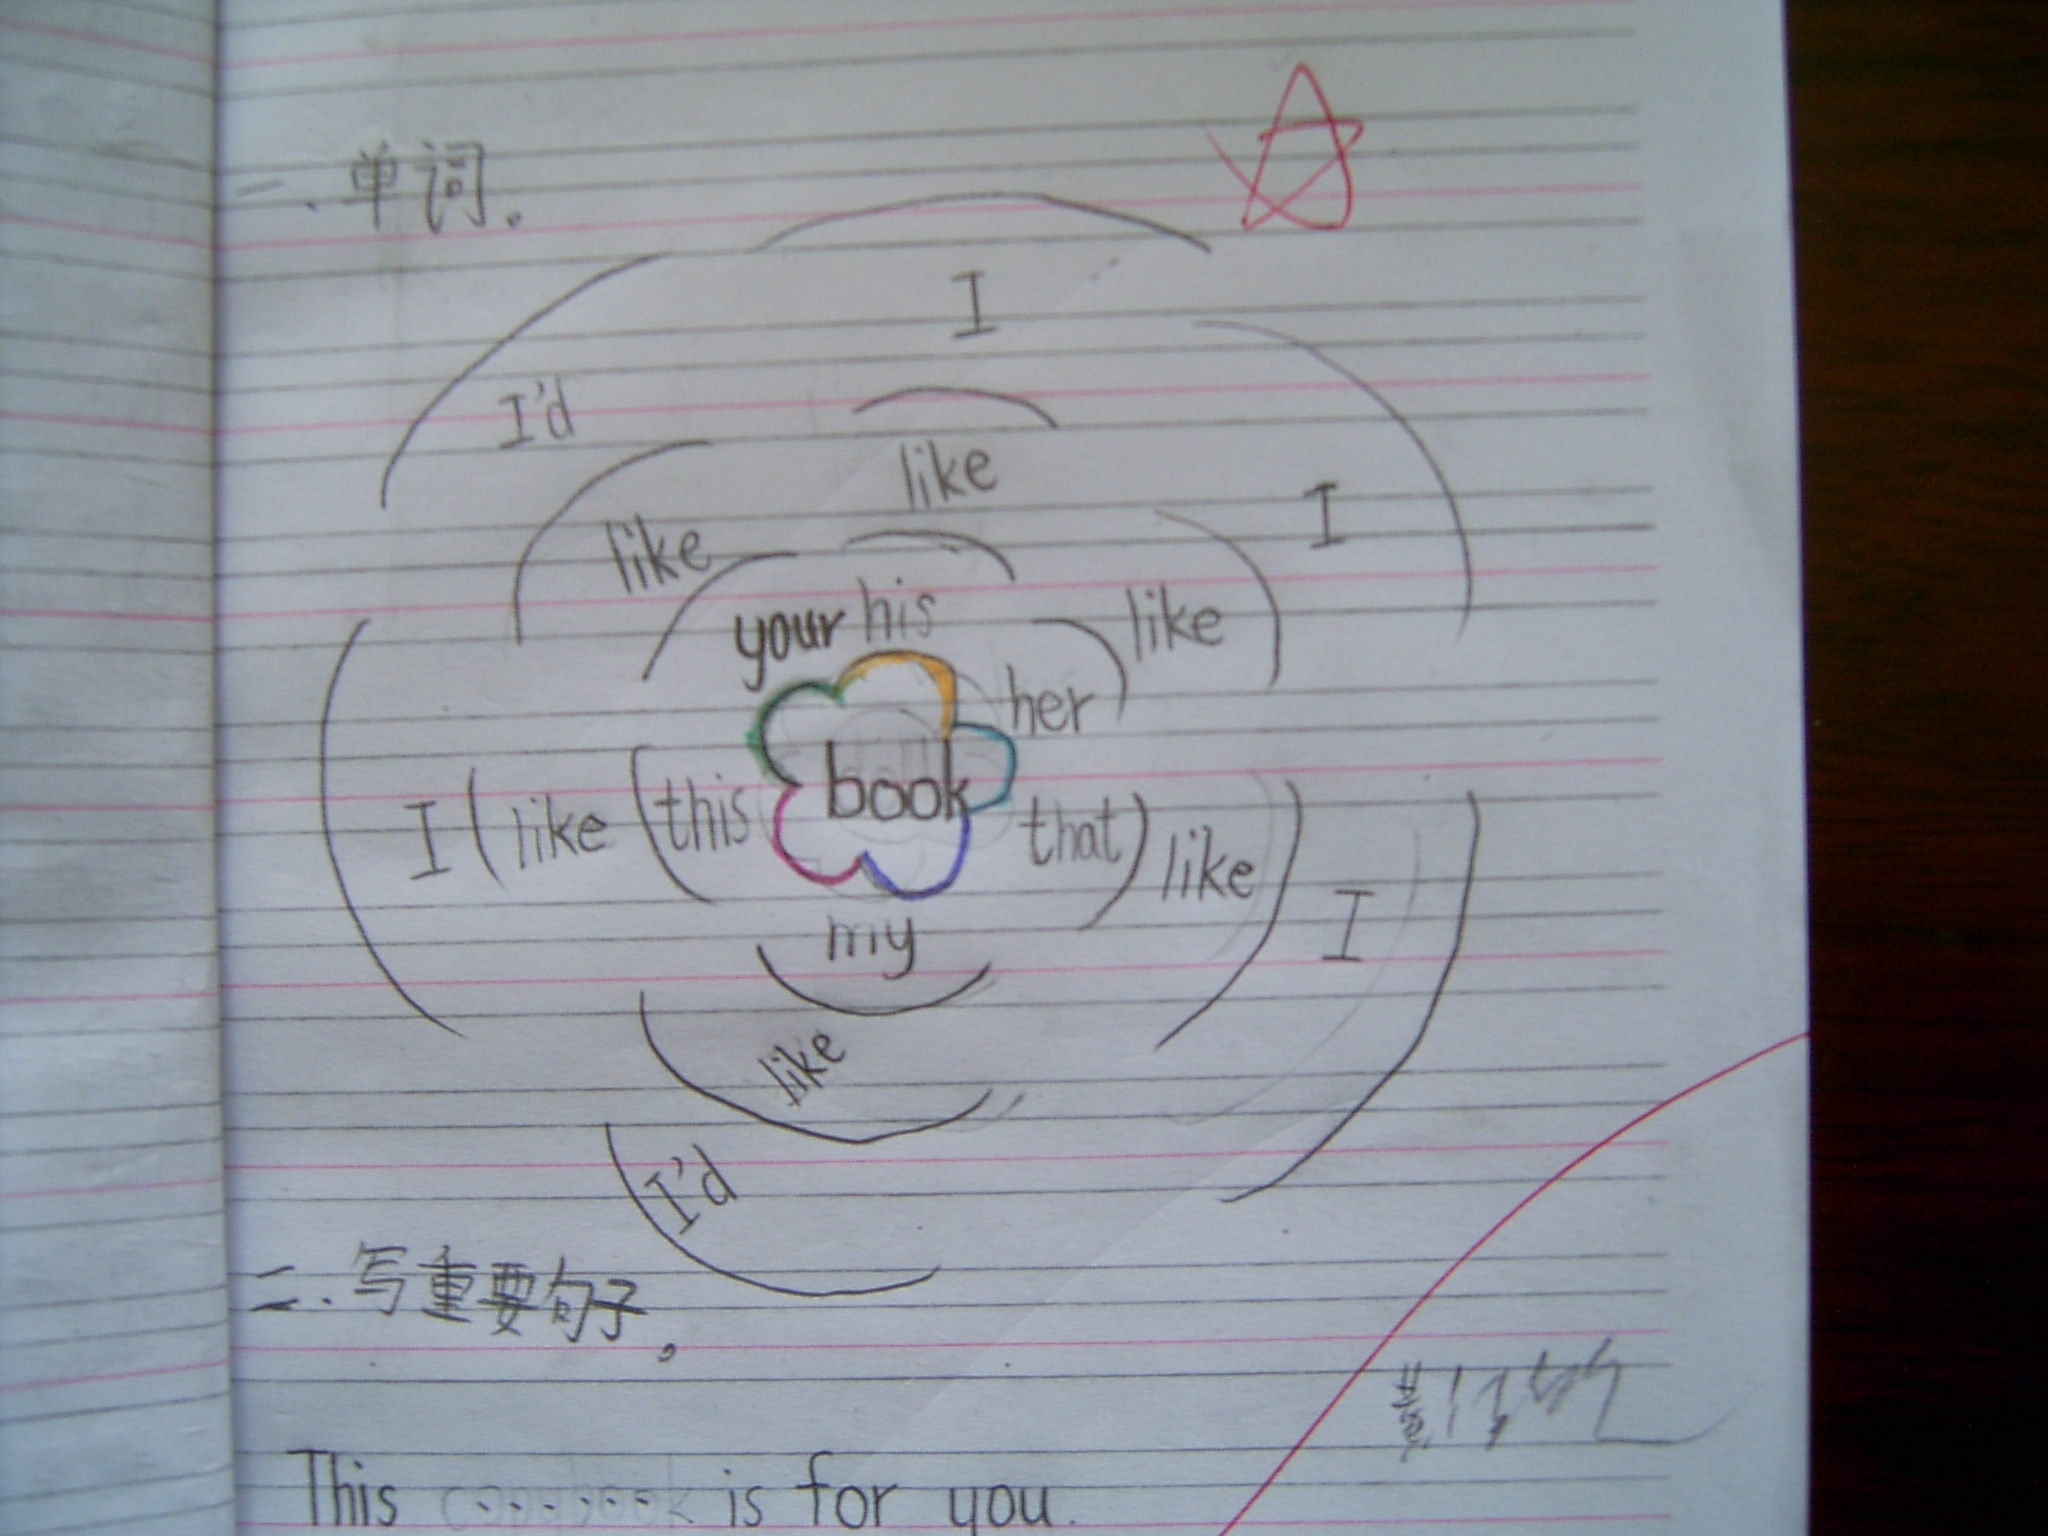 一.单词。
I
I'd
like
I
like
your his
like
her
book
I like this
that
like
I
my
like
I'd
二.写重要句子。
This ...... is for you.